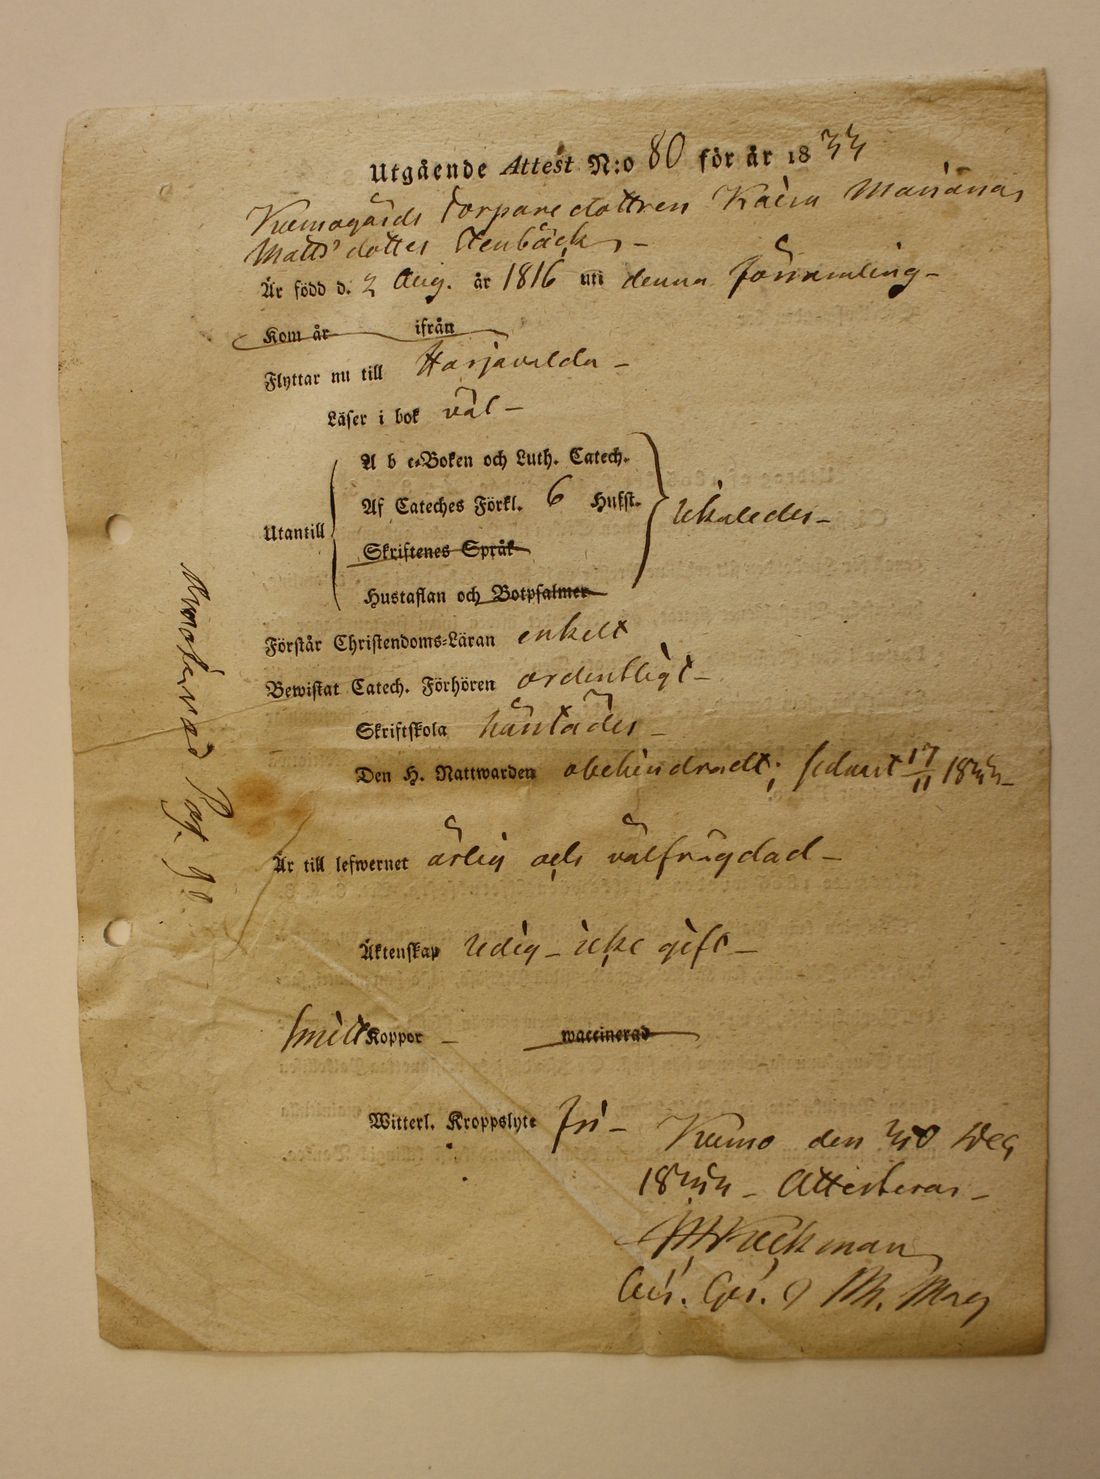 Utgående Attest N:o 80 för år 1833
Kumogårds Torparedottren Kaisa Mariana
Matts dotter Stenbäck –
Är född d. 2 Aug. år 1816 uti denna församling –
Kom år ifrån
Flyttar nu till Harjavalda –
Läser i bok väl –
A b c-Boken och Luth. Catech.
Af Cateches Förkl. 6 Hufst.
Utantill likaledes –
Skriftenes Språk
Hustaflan och Botpsalmer
Förstår Christendoms-Läran enkelt
Bewistat Catech. Förhören ordentligt –
Skriftskola
Den H. Nattwarden obehindradt; sednast 17/11 1833 –
Är till lefwernet ärlig och välfrägdad –
Äktenskap ledig – icke gift –
Koppor – waccinerad
Witterl. Kroppslyte fri –
Kumo den 30 Dec
1833 – Attesteras –
Noterad Pag. 90